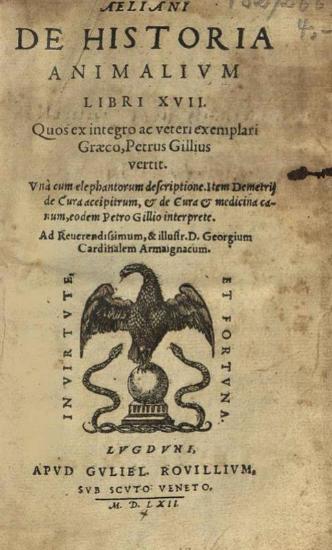 AELIANI
DE HISTORIA
ANIMALIVM
LIBRI XVII.
Quos ex integro ac veteri exemplari
Græco, Petrus Gillius
vertit.
Vnà cum elephantorum descriptione. Item Demetrij
de Cura accipitrum, & de Cura & medicina ca-
num, eodem Petro Gillio interprete.
Ad Reuerendissimum, & illustr. D. Georgium
Cardinalem Armaignacum.
IN VIRTVTE,
ET FORTVNA.
LVGDVNI,
APVD GVLIEL. ROVILLIVM,
SVB SCVTO VENETO.
M. D. LXII.